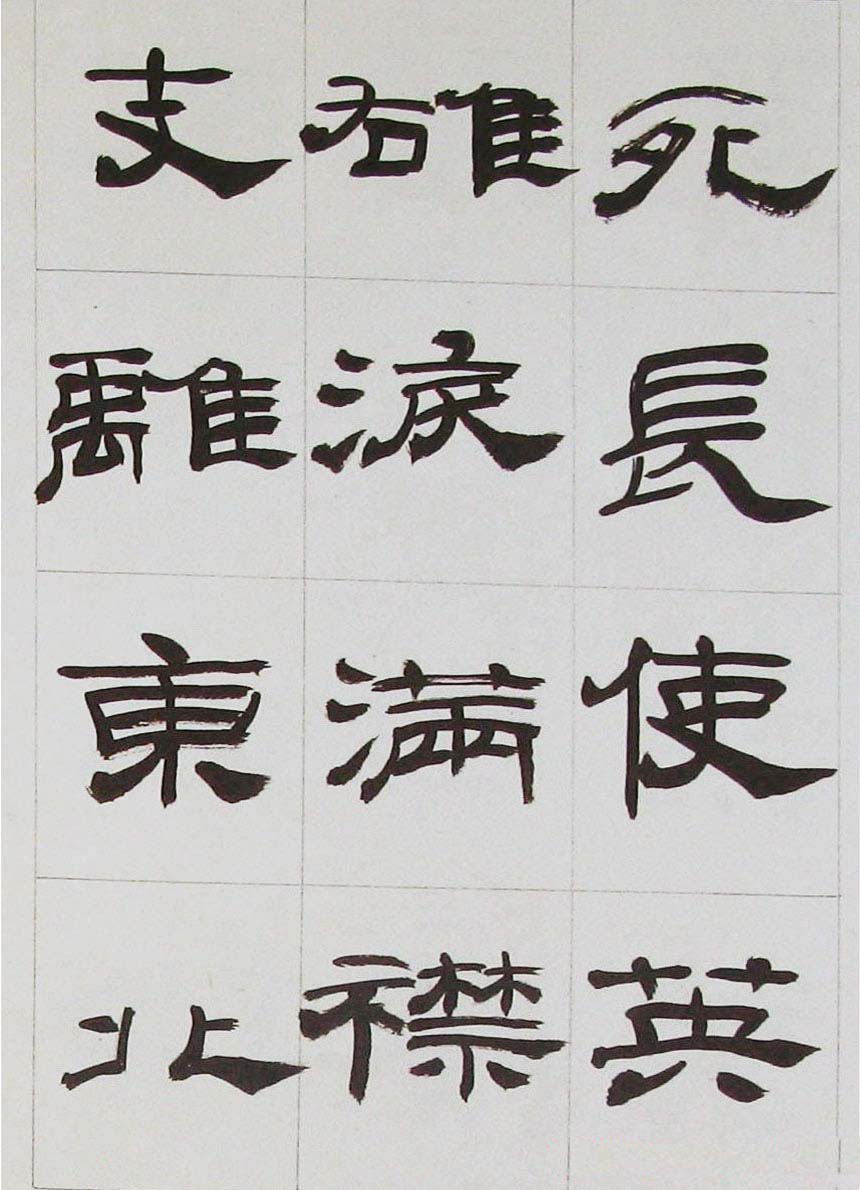 死長使英
雄淚滿襟
支離東北